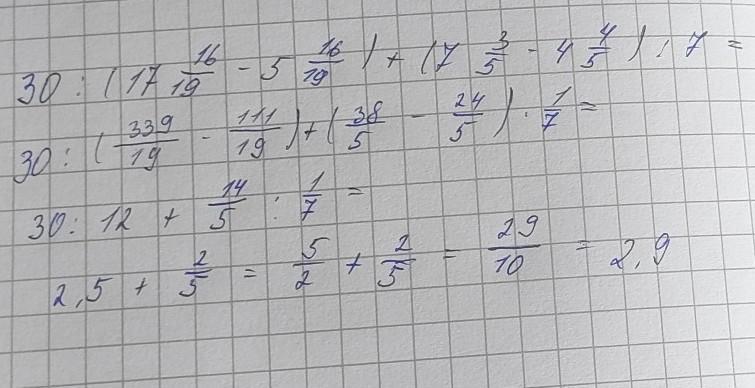 30 : (17 16/19 - 5 16/19) + (7 3/5 - 4 4/5) : 7 =
30 : (339/19 - 111/19) + (38/5 - 24/5) · 1/7 =
30 : 12 + 14/5 : 1/7 =
2,5 + 2/5 = 5/2 + 2/5 = 29/10 = 2,9